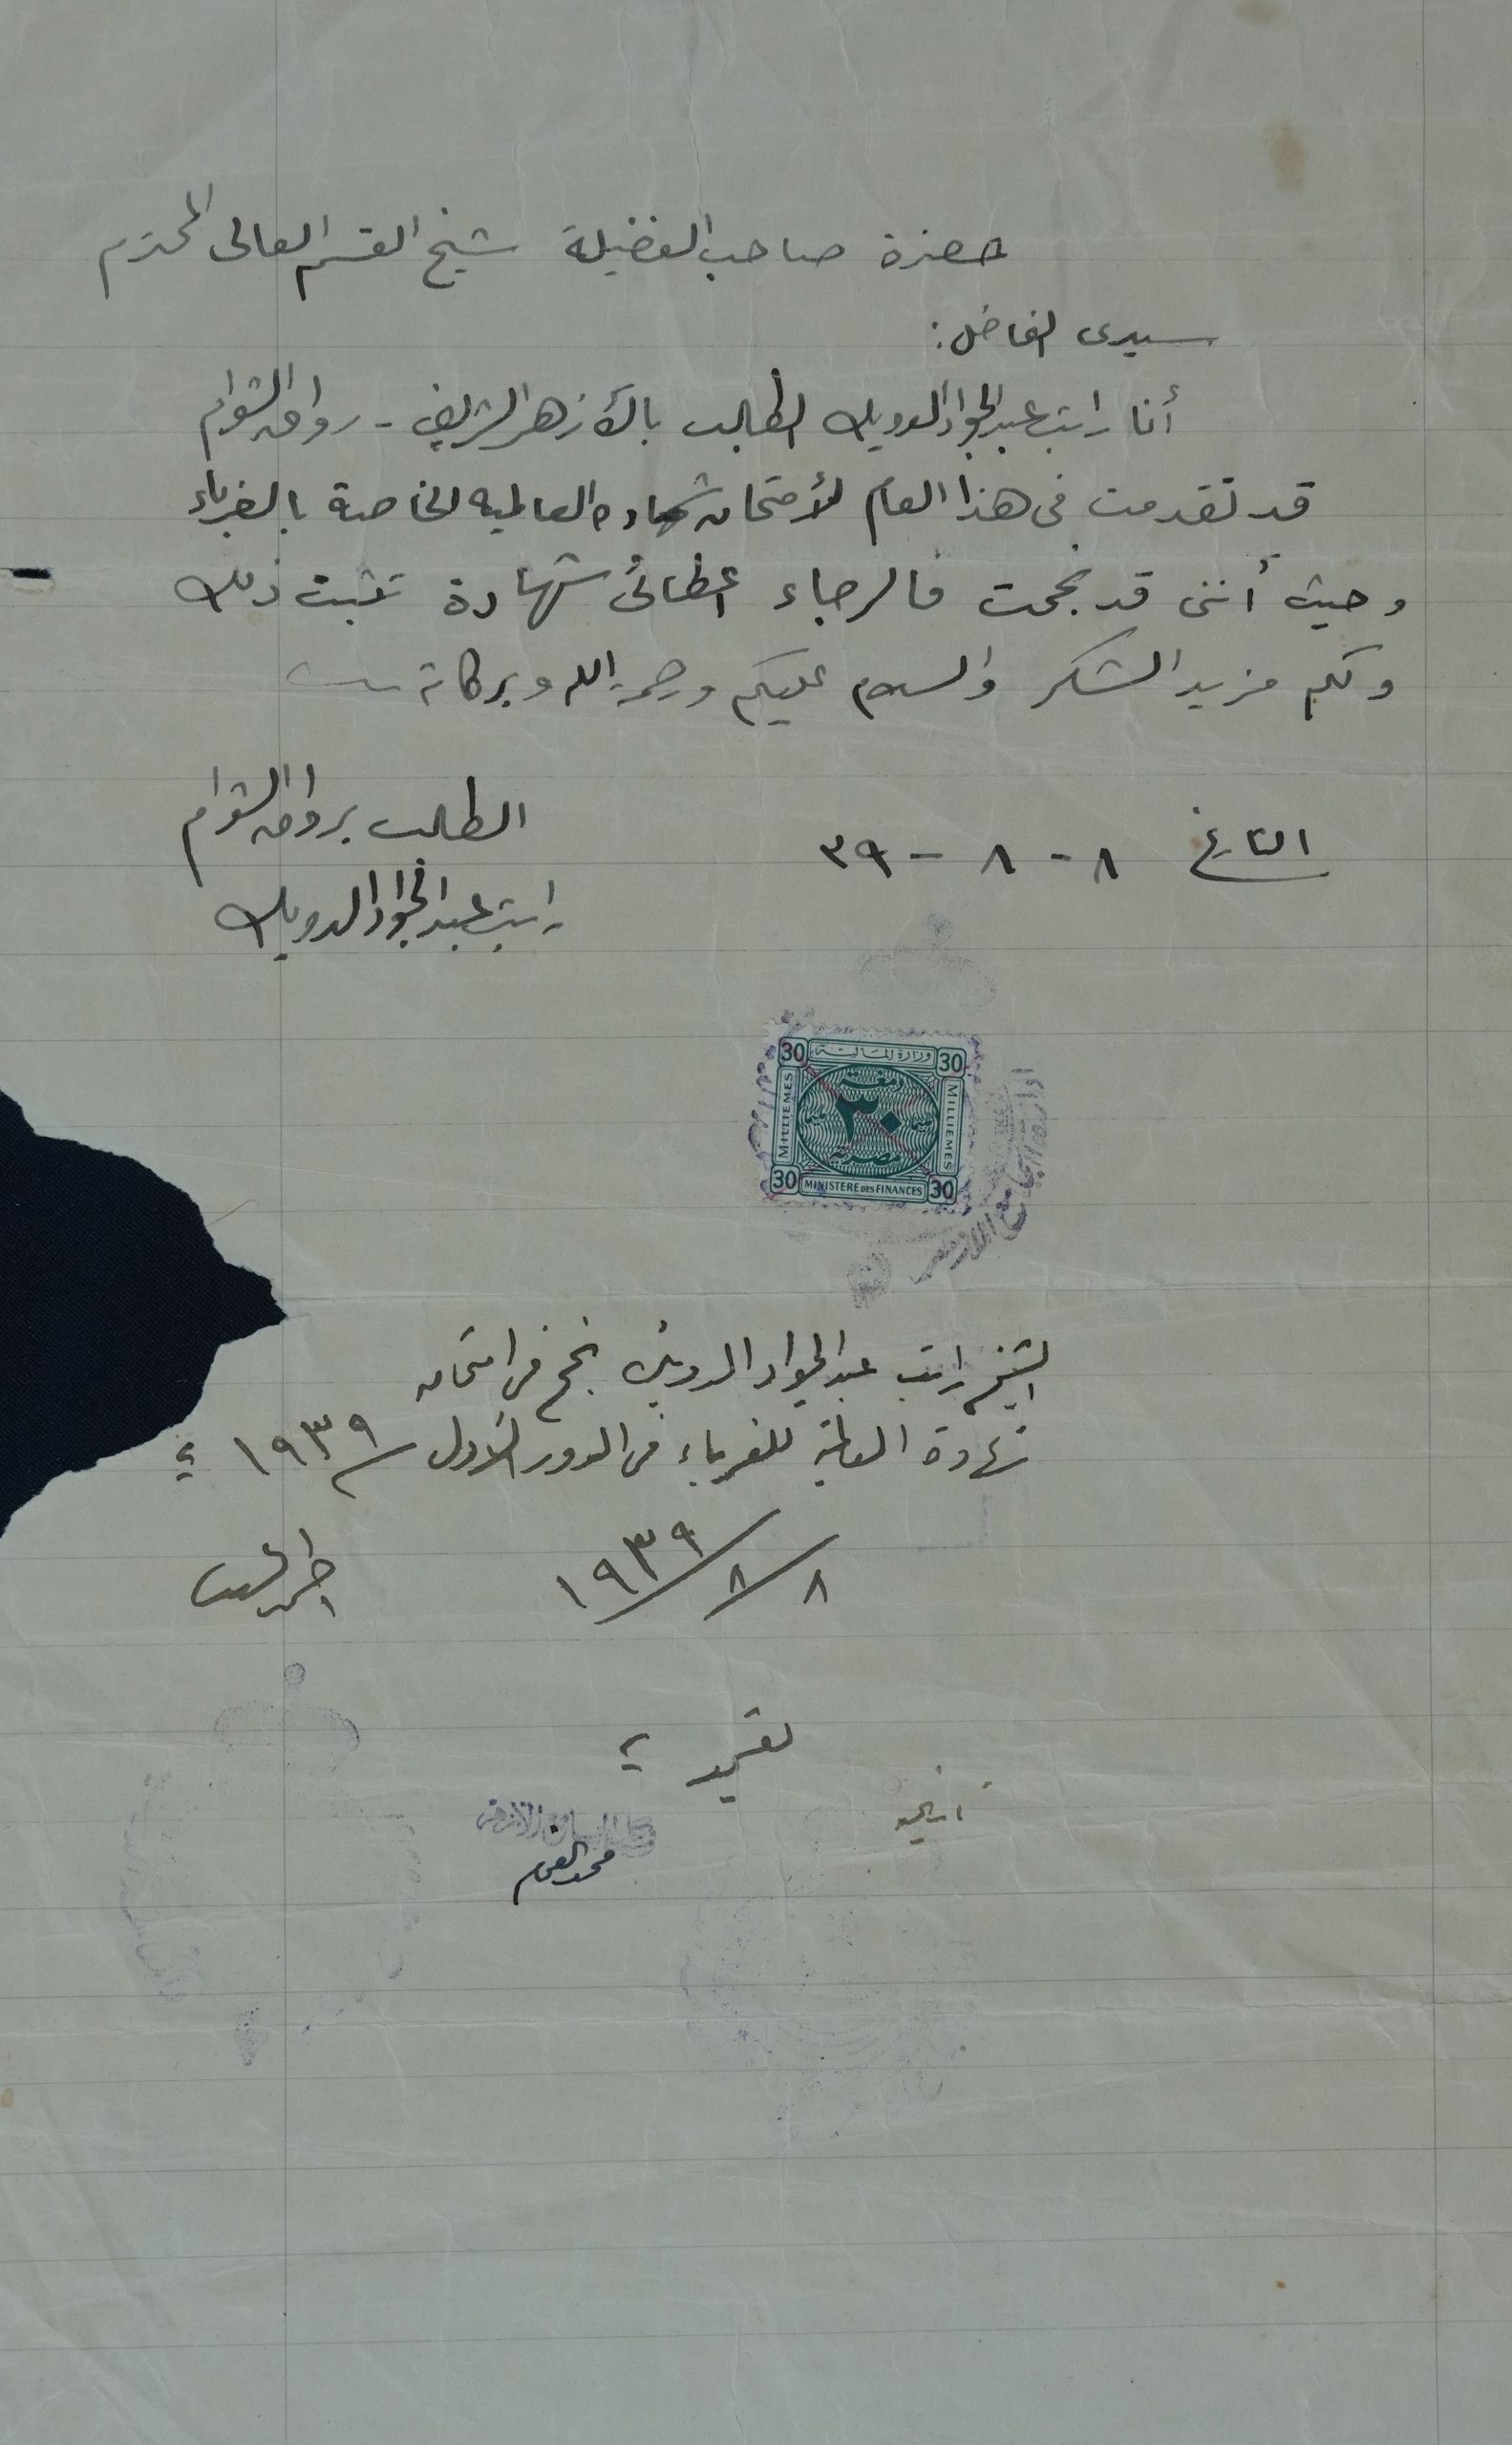 حضرة صاحب الفضيلة شيخ القسم العالى المحترم
سيدى الفاضل:
أنا راتب عبد الجواد الدويك الطالب بالأزهر الشريف - رواق الشوام
قد تقدمت فى هذا العام لأمتحان شهادة العالميه الخاصة بالغرباء
وحيث أننى قد نجحت فالرجاء اعطائى شهادة تثبت ذلك
ولكم مزيد الشكر والسلام عليكم ورحمة الله وبركاته
التاريخ ٨ - ٨ - ٣٩
الطالب برواق الشوام
راتب عبد الجواد الدويك
30 وزارة المالية 30
MILLIEMES دمغة MILLIEMES
٣٠
مليما مليما
مصرية
30 MINISTERE DES FINANCES 30
ادارة الجامع الازهر
الشيخ راتب عبد الجواد الدويك نجح فى امتحان
شهادة العالمية للغرباء فى الدور الأول سنة ١٩٣٩
٨/٨/١٩٣٩
محمد